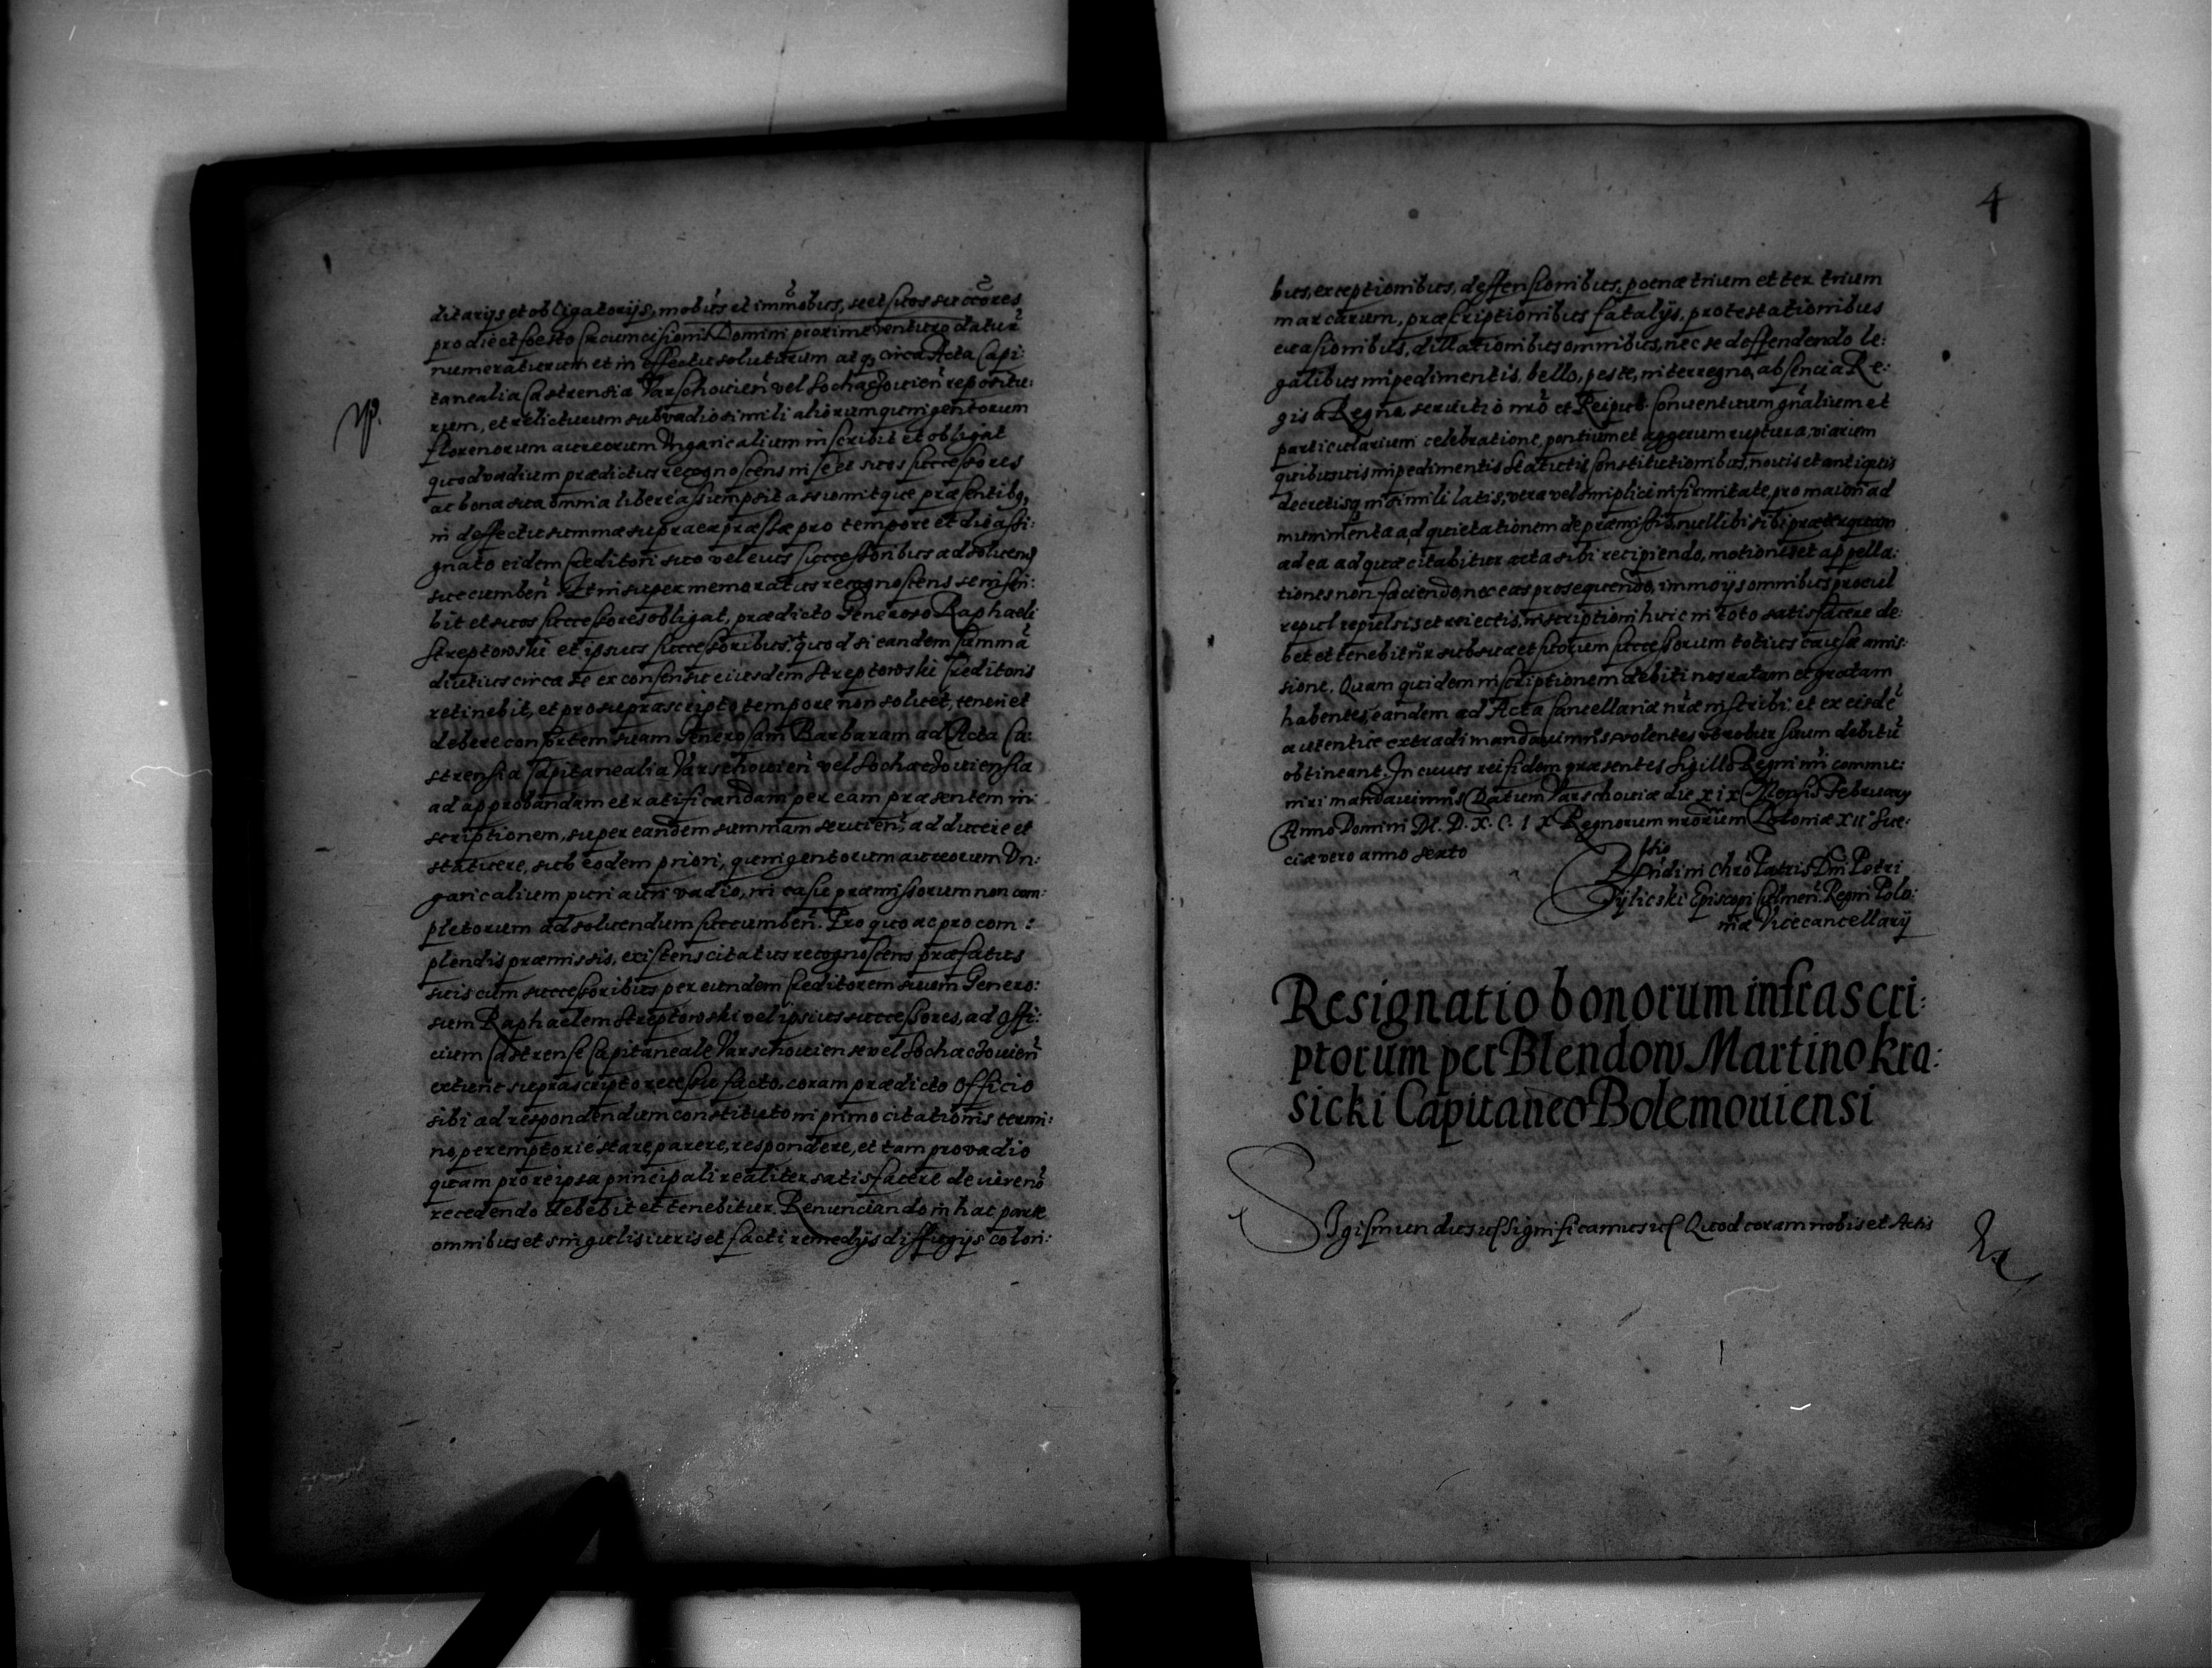 ditarijs et obligatorijs, mobũs et imm̃obũs, seet suos succ̃ores
pro die et foesto Circumcisionis Domini proxime venturo datur̃
numeraturum et in effectu soluturum atq, circa Acta Capi:
tanealia Castrensia Varschouien̄ vel Sochaczouien̄ repositu:
rum, et relicturum sub vadio simili aliorum quingentorum
florenorum aureorum Vngaricalium inscribit et obligat
quod vadium prædictus recognoscens in se et suos successores
ac bona sua omnia libere assumpsit assumitque præsentibq,
in deffectu summæ supraexpræssæ pro tempore et die assi:
gnato eidem Creditori suo vel eius successoribus ad soluend
succumben̄. Et in super memoratus recognoscens se inscri:
bit et suos successores obligat, prædicto Generoso Raphaeli
Streptowski et ipsius successoribus, quod si eandem summā
diutius circa se ex consensu eiusdem Streptowski Creditoris
retinebit, et pro suprascripto tempore non soluet, teneri et
debere consortem suam Generosam Barbaram ad Acta Ca:
strensia Capitanealia Varschouien̄ vel Sochaczouiensia
ad approbandam et ratificandam per eam præsentem in:
scriptionem, super eandem summam seruien̄, adducere et
statuere, sub eodem priori, quingentorum aureorum Vn:
garicalium puri auri vadio, in casu præmissorum non com:
pletorum ad soluendum succumben̄. Pro quo ac pro com:
plendis præmissis, existens citatus recognoscens præfatus
suis cum successoribus per eundem Creditorem suum Genero:
sum Raphaelem Streptowski vel ipsius successores, ad Offi:
cium Castrense Capitaneale Varschouiense vel Sochaczouien̄
extunc suprascripto recessu facto, coram prædicto Officio
sibi ad respondendum constituto in primo citationis termi:
no, peremptorie stare, parere, respondere, et tam pro vadio
quam pro re ipsa principali realiter satisfacere
recedendo debebit et tenebitur. Renunciando in hac parte
omnibus et singulis iuris et facti remedijs diffugijs colori:
4
bus, exceptionibus, deffensionibus, poenæ trium et ter trium
marcarum, præscriptionibus fatalijs, protestationibus
euasionibus, dillationibus omnibus, nec se deffendendo le:
galibus impedimentis, bello, peste, interregno, absencia Re:
gis a Regno seruitio nr̃o et Reipub. Conuentuum gñalium et
particularium celebratione, pontium et aggerum ruptura, viarum
quibusuis impedimentis Statutis Constitutionibus, nouis et antiquis
decretisq in simili latis, vera vel simplici infirmitate, pro maiori ad
munimenta ad quietationem de præmissis, nullibi sibi præterquam
ad ea ad quæ citabitur acta sibi recipiendo, motiones et appella:
tiones non faciendo, nec eas prosequendo, immo ijs omnibus procul
repulsis et reiectis, inscriptioni huic in toto satisfacere de:
bet et tenebitur sub sua et suorum successorum totius causæ amis:
sione. Quam quidem inscriptionem debiti nos ratam et gratam
habentes, eandem ad Acta Cancellariæ nr̃æ inscribi et ex eisdẽ
autentice extradi mandauimus volentes vt robur suum debitũ
obtineant. In cuius rei fidem præsentes Sigillo Regni nr̃i commu:
niri mandauimus Datum Varschouiæ die xix Mensis Februarij
Anno Domini M. D. X. C. I X Regnorum nr̃orum Poloniæ XIIº Sue:
ciæ vero anno sexto
R̃ndi in Chr̃o Patris Dñi Petri
Tylicski Episcopi Culmen̄. Regni Polo:
niæ Vicecancellarij
Resignatio bonorum infrascri:
ptorum per Blendow Martino Kra:
sicki Capitaneo Bolemouiensi
Sigismundus &c Significamus &c Quod coram nobis et Actis